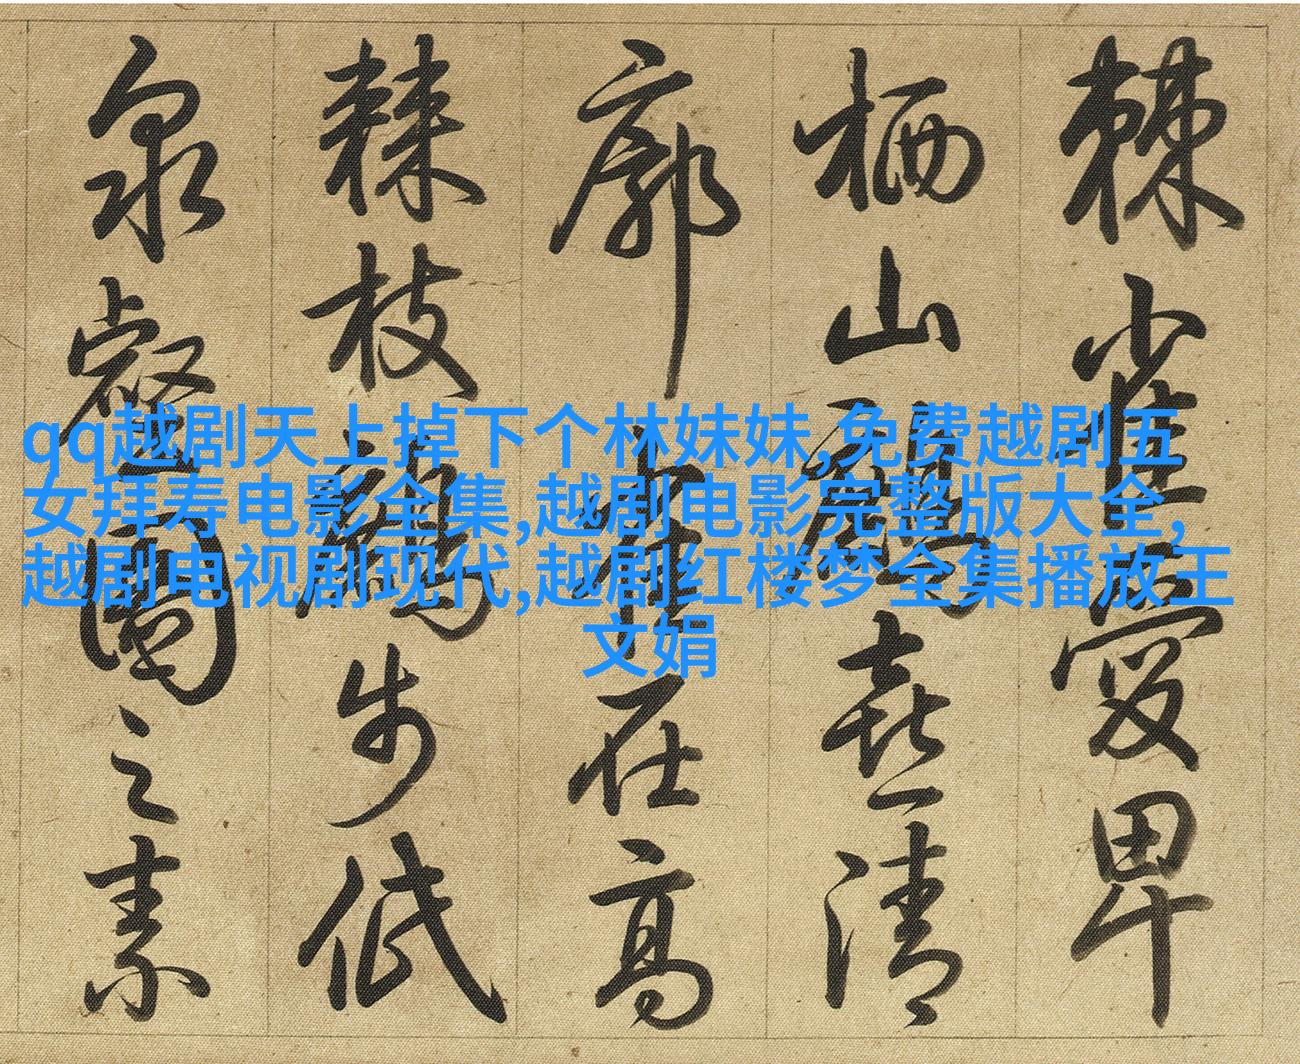 棘雀愛卑
栖山鶴喜清
廓雀在高
棘枝鶴步低
泉壑圖之素
qq越剧天上掉下个林妹妹,免费越剧五
女拜寿电影全集,越剧电影完整版大全,
越剧电视剧现代,越剧红楼梦全集播放王
文娟